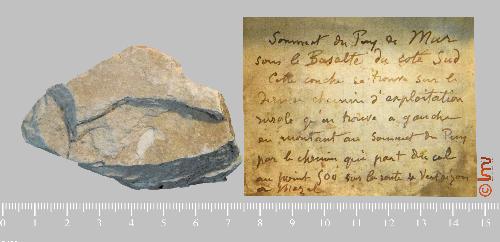 Sommet du Puy de Mur
sous le Basalte du coté Sud
Cette couche se trouve sur le
dernier chemin d'exploitation
rurale qu'on trouve a gauche
en montant au sommet du Puy
par le chemin qui part du col
au point 500 sur la route de Vertaizon
a Mezel
0 1 2 3 4 5 6 7 8 9 10 11 12 13 14 15